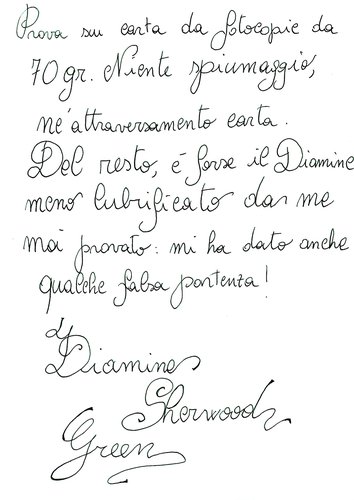 Prova su carta da fotocopie da
70 gr. Niente spiumaggio,
né attraversamento carta.
Del resto, è forse il Diamine
meno lubrificato da me
mai provato: mi ha dato anche
qualche falsa partenza!
Diamine
Sherwood
Green